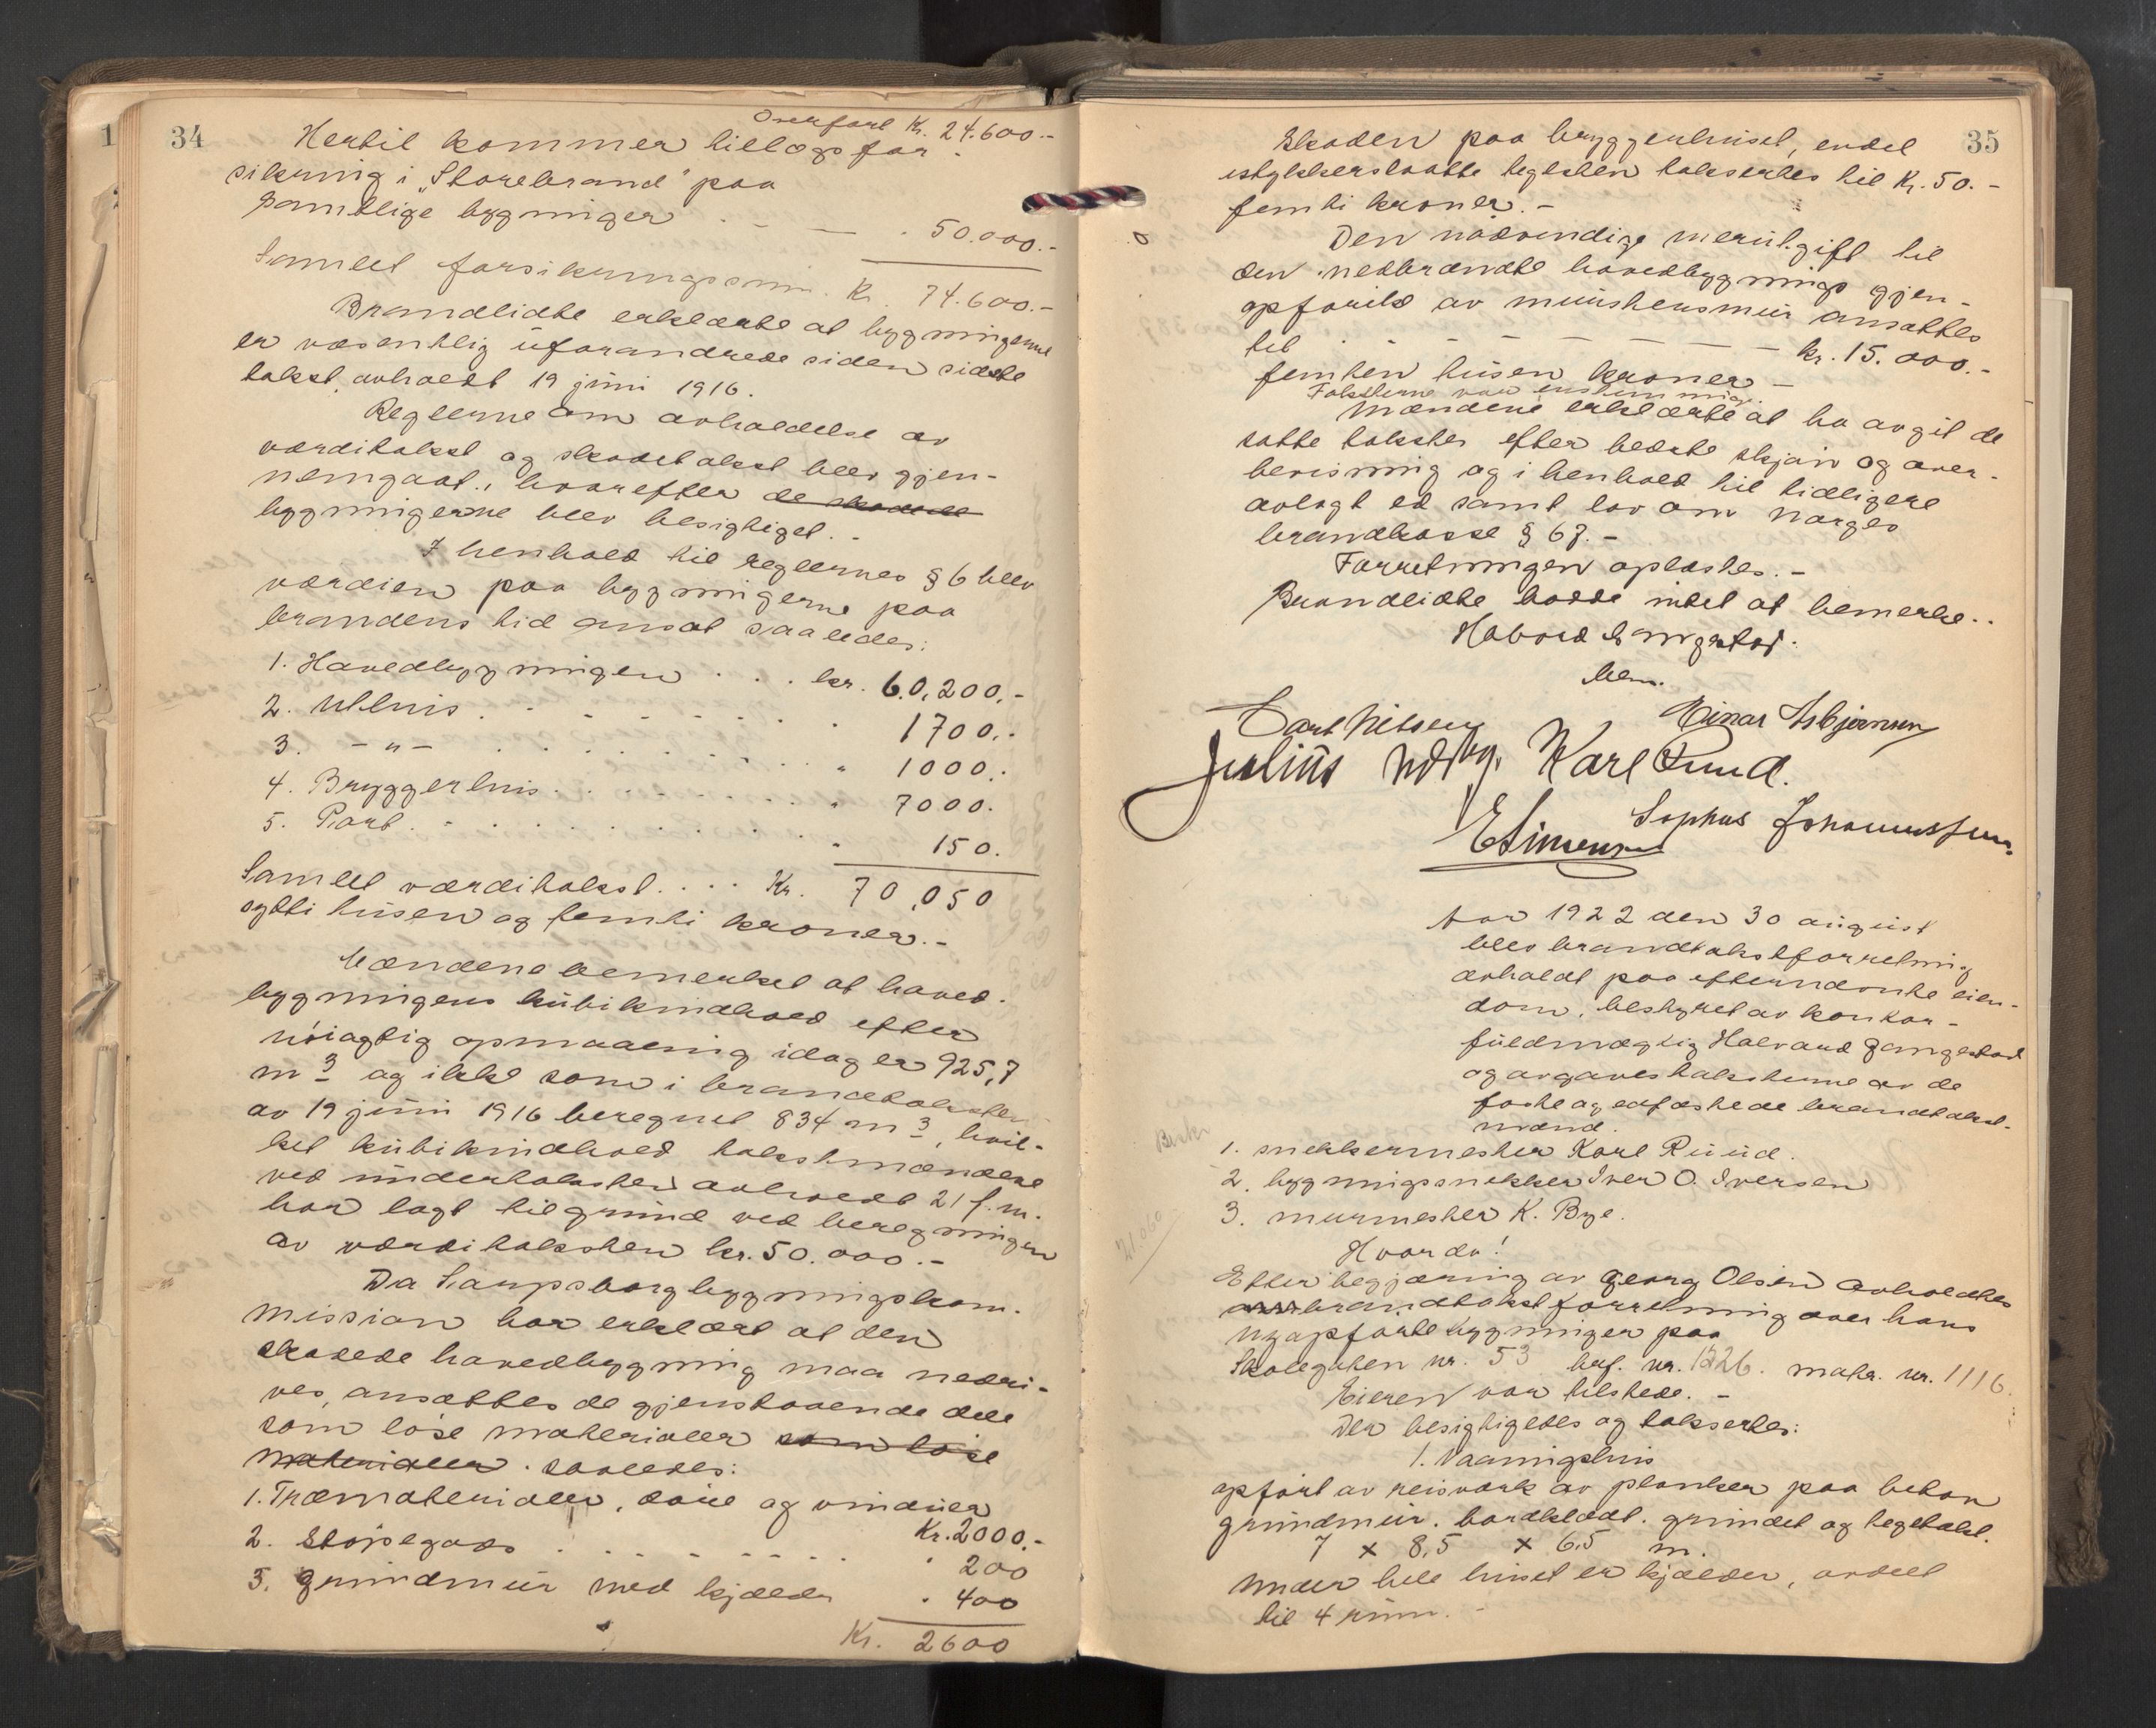 34
Overført Kr. 24.600.-
Hertil kommer tillægsfor-
sikring i "Storebrand" paa
samtlige bygninger . - — . 50.000.-
Samlet forsikringssum. Kr. 74.600.-
Brandlidte erklærte at bygningerne
er væsentlig uforandrede siden sidste
takst, avholdt 19 juni 1916.
Reglerne om avholdelse av
værditakst og skadetakst blev gjen-
nemgaat, hvorefter de skadede
bygningerne blev besigtiget.-
I henhold til reglernes § 6 blev
værdien paa bygningerne paa
brandens tid ansat saaledes:
1. Hovedbygningen . . . kr. 60,200.-
2. Uthus . . . . . . 1700.-
3. -"- . . . . . . " 1000.-
4. Bryggerhus . . . . . . " 7000.
5. Port . . . . . . " 150.
Samlet værditakst . . . . Kr. 70,050
sytti tusen og femti kroner.-
Mændene bemerket at hoved-
bygningens kubikindhold efter
nøiagtig opmaaling idag er 925,7
m3 og ikke som i brandtaksten
av 19 juni 1916 beregnet 834 m3, hvil-
ket kubikindhold takstmændene
ved undertaksten avholdt 21 f.m.
har lagt tilgrund ved beregningen
av værditaksten kr. 50.000.-
Da Sarpsborg bygningskom-
mission har erklært at den
skadede hovedbygning maa nedri-
ves, ansættes de gjenstaaende dele
som løse materialer som løse
materialer. saaledes:
1. Træmaterialer, døre og vinduer
Kr. 2000.-
2. Støpegods . . . . . . " 200
3. Grundmur med kjælder . 400
Kr. 2600
35
Skaden paa bryggerhuset, endel
istykkerslaatte teglsten takseres til Kr. 50.-
femti kroner.-
Den nødvendige merutgift til
den nedbrændte hovedbygnings gjen-
opførelse av murstensmur ansattes
til . - - - - - - - kr. 15.000.-
femten tusen kroner -
Taksterne var enstemmige.
Mændene erklærte at ha avgit de
satte takster efter bedste skjøn og over-
bevisning og i henhold til tidligere
avlagt ed samt lov om Norges
brandkasse § 67.-
Forretningen oplæstes.-
Brandlidte hadde intet at bemerke..
Carl Nilsen Einar Asbjørnsen
Julius Karl Ruud.
Sophus Johannessen.
E Simensen
Aar 1922 den 30 august
blev brandtakstforretning
avholdt paa efternævnte eien-
dom, bestyret av kontor-
fuldmægtig Halvard Gangestad
og avgaves taksterne av de
faste og edfæstede brandtakst-
mænd.
1. snekkermester Karl Ruud.
2. bygningssnekker Iver O. Iversen
3. murmester K. Bye.
21.060
Hvorda!
Efter begjæring av Georg Olsen avholdtes
brandtakstforretning over hans
nyopførte bygninger paa
Skolegaten nr. 53 brf. nr. 1226. matr. nr. 1116.
Eieren var tilstede. -
Der besigtigedes og takseres:
1. Vaaningshus
opført av reisværk av planker paa beton
grundmur. bordklædt. grundet og tegltakt.
7 x 8,5 x 6,5 m.
Under hele huset er kjælder, avdelt
til 4 rum.